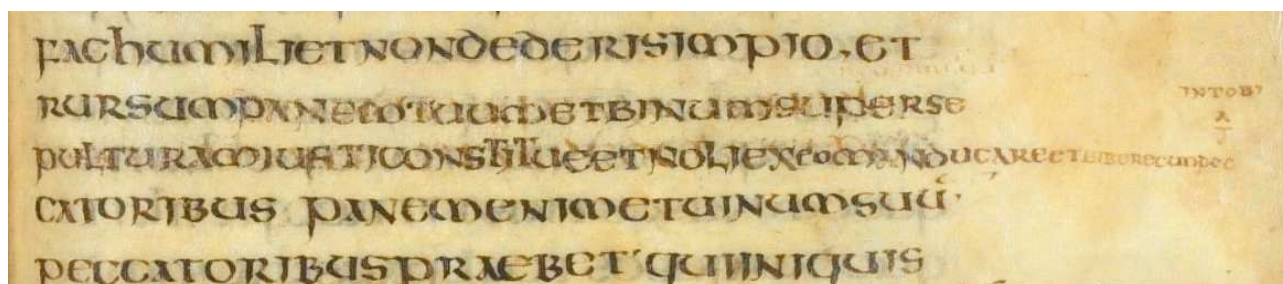 FAC HUMILI ET NON DEDERIS IMPIO, ET
RURSUM PANEM TUUM ET BINUM SUPER SE
PULTURAM IUSTI CONSTITUE ET NOLI EX EO MANDUCARE ET BIBERE CUM PEC
INTOBI
CATORIBUS PANEM ENIM ET UINUM SUŪ·
PECCATORIBUS PRAEBET QUI INIQUIS